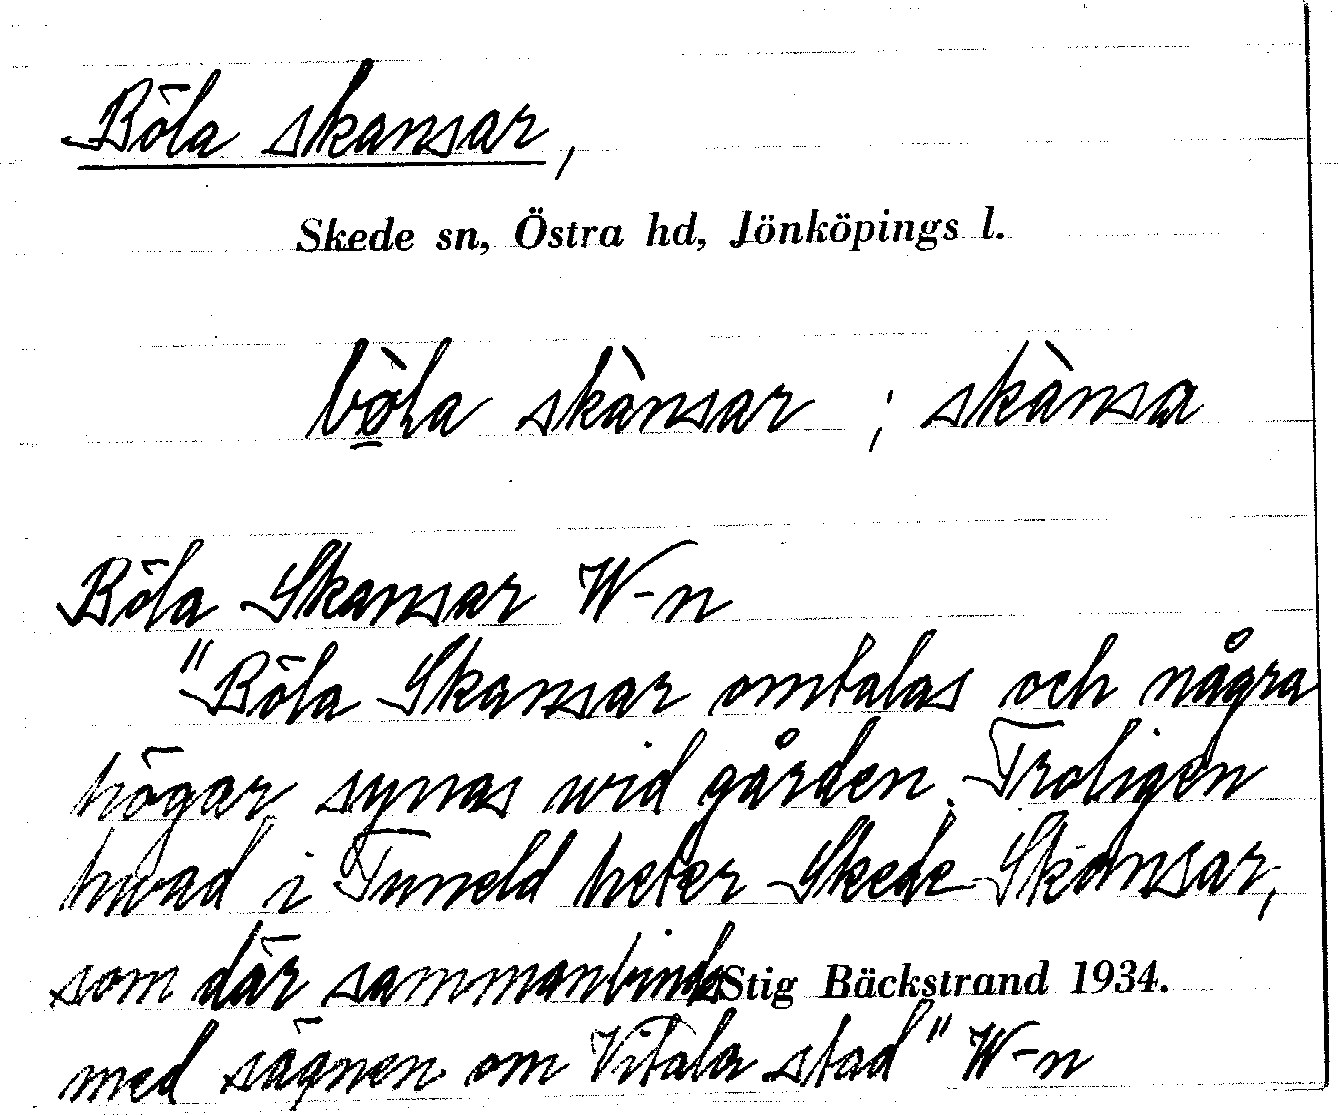 Böla skansar,
Skede sn, Östra hd, Jönköpings l.
bö̀la skànsar ; skànsa
Böla Skansar W-n
"Böla Skansar omtalas och några
högar synas wid gården. Troligen
hwad i Tuneld heter Skede Skansar,
som där sammanbinds
Stig Bäckstrand 1934.
med sägnen om Vitala stad" W-n